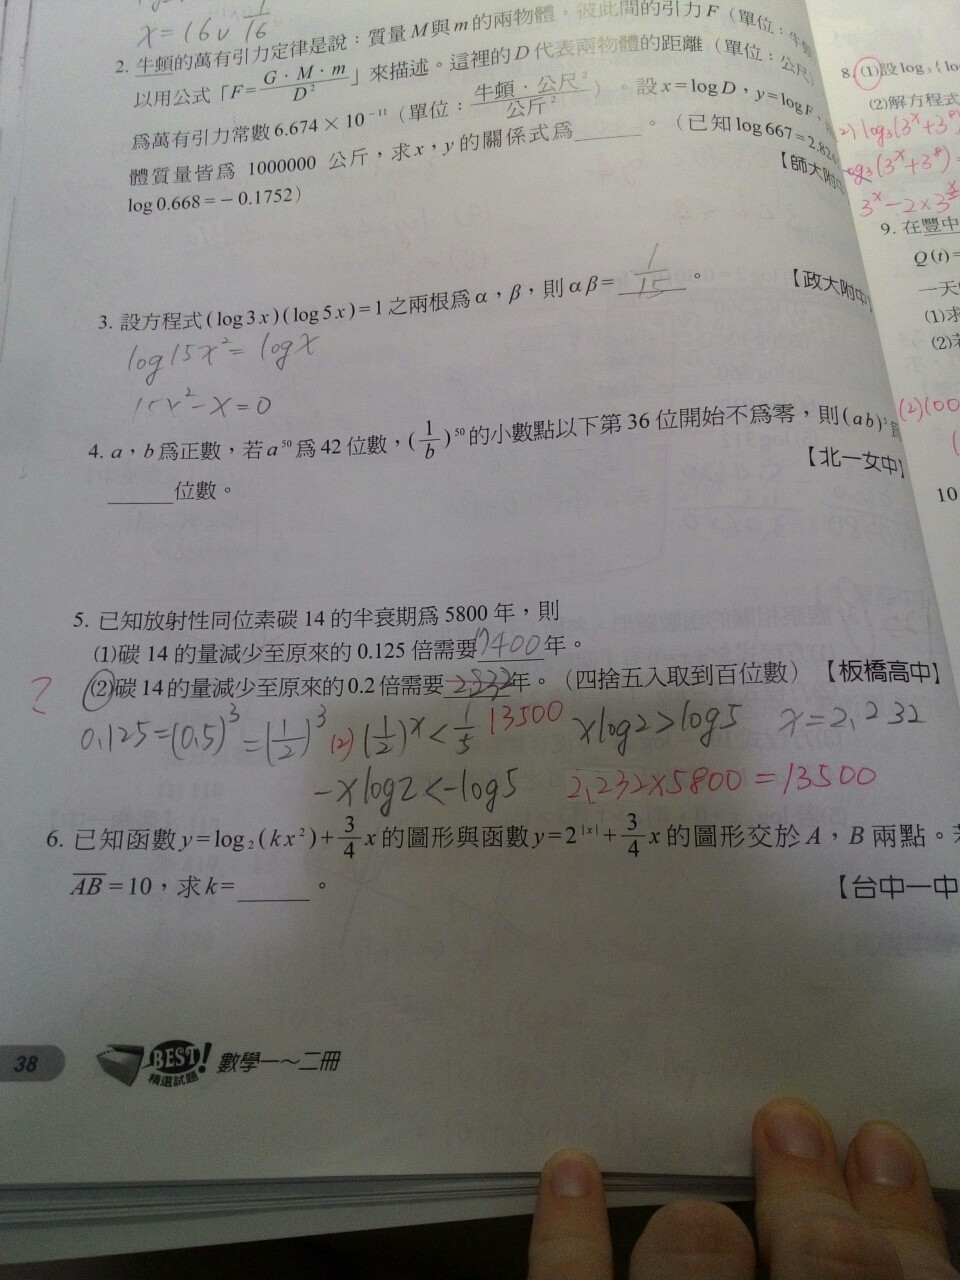 x=16 v 1/16
2. 牛頓的萬有引力定律是說：質量M與m的兩物體，彼此間的引力F（單位：牛頓
以用公式「F=G·M·m/D²」來描述。這裡的D代表兩物體的距離（單位：公尺）
爲萬有引力常數6.674×10⁻¹¹（單位：牛頓·公尺²/公斤²）。設x=logD，y=logF，
體質量皆爲 1000000 公斤，求x，y的關係式爲______。（已知log667=2.824
log0.668=−0.1752）
【師大附中
3. 設方程式(log3x)(log5x)=1之兩根爲α，β，則αβ=1/15。
【政大附中】
log15x²=logx
15x²-x=0
4. a，b爲正數，若a⁵⁰爲42位數，(1/b)⁵⁰的小數點以下第36位開始不爲零，則(ab)⁵爲
______位數。
【北一女中】
5. 已知放射性同位素碳14的半衰期爲5800年，則
(1)碳14的量減少至原來的0.125倍需要17400年。
?
(2)碳14的量減少至原來的0.2倍需要2,232年。（四捨五入取到百位數）【板橋高中】
0.125=(0.5)³=(1/2)³ (2)(1/2)ˣ<1/5 13500 xlog2>log5 x=2,232
-xlog2<-log5 2,232×5800=13500
6. 已知函數y=log₂(kx²)+3/4x的圖形與函數y=2^|x|+3/4x的圖形交於A，B兩點。若
AB=10，求k=______。
【台中一中
38 BEST! 精選試題 數學一～二冊
8. (1)設log₃(lo
(2)解方程式
2) log₃(3ˣ+3⁸)
log₃(3ˣ+3⁸)=
9. 在豐中
Q(t)=
一天
(1)求
(2)若
(2)100
10